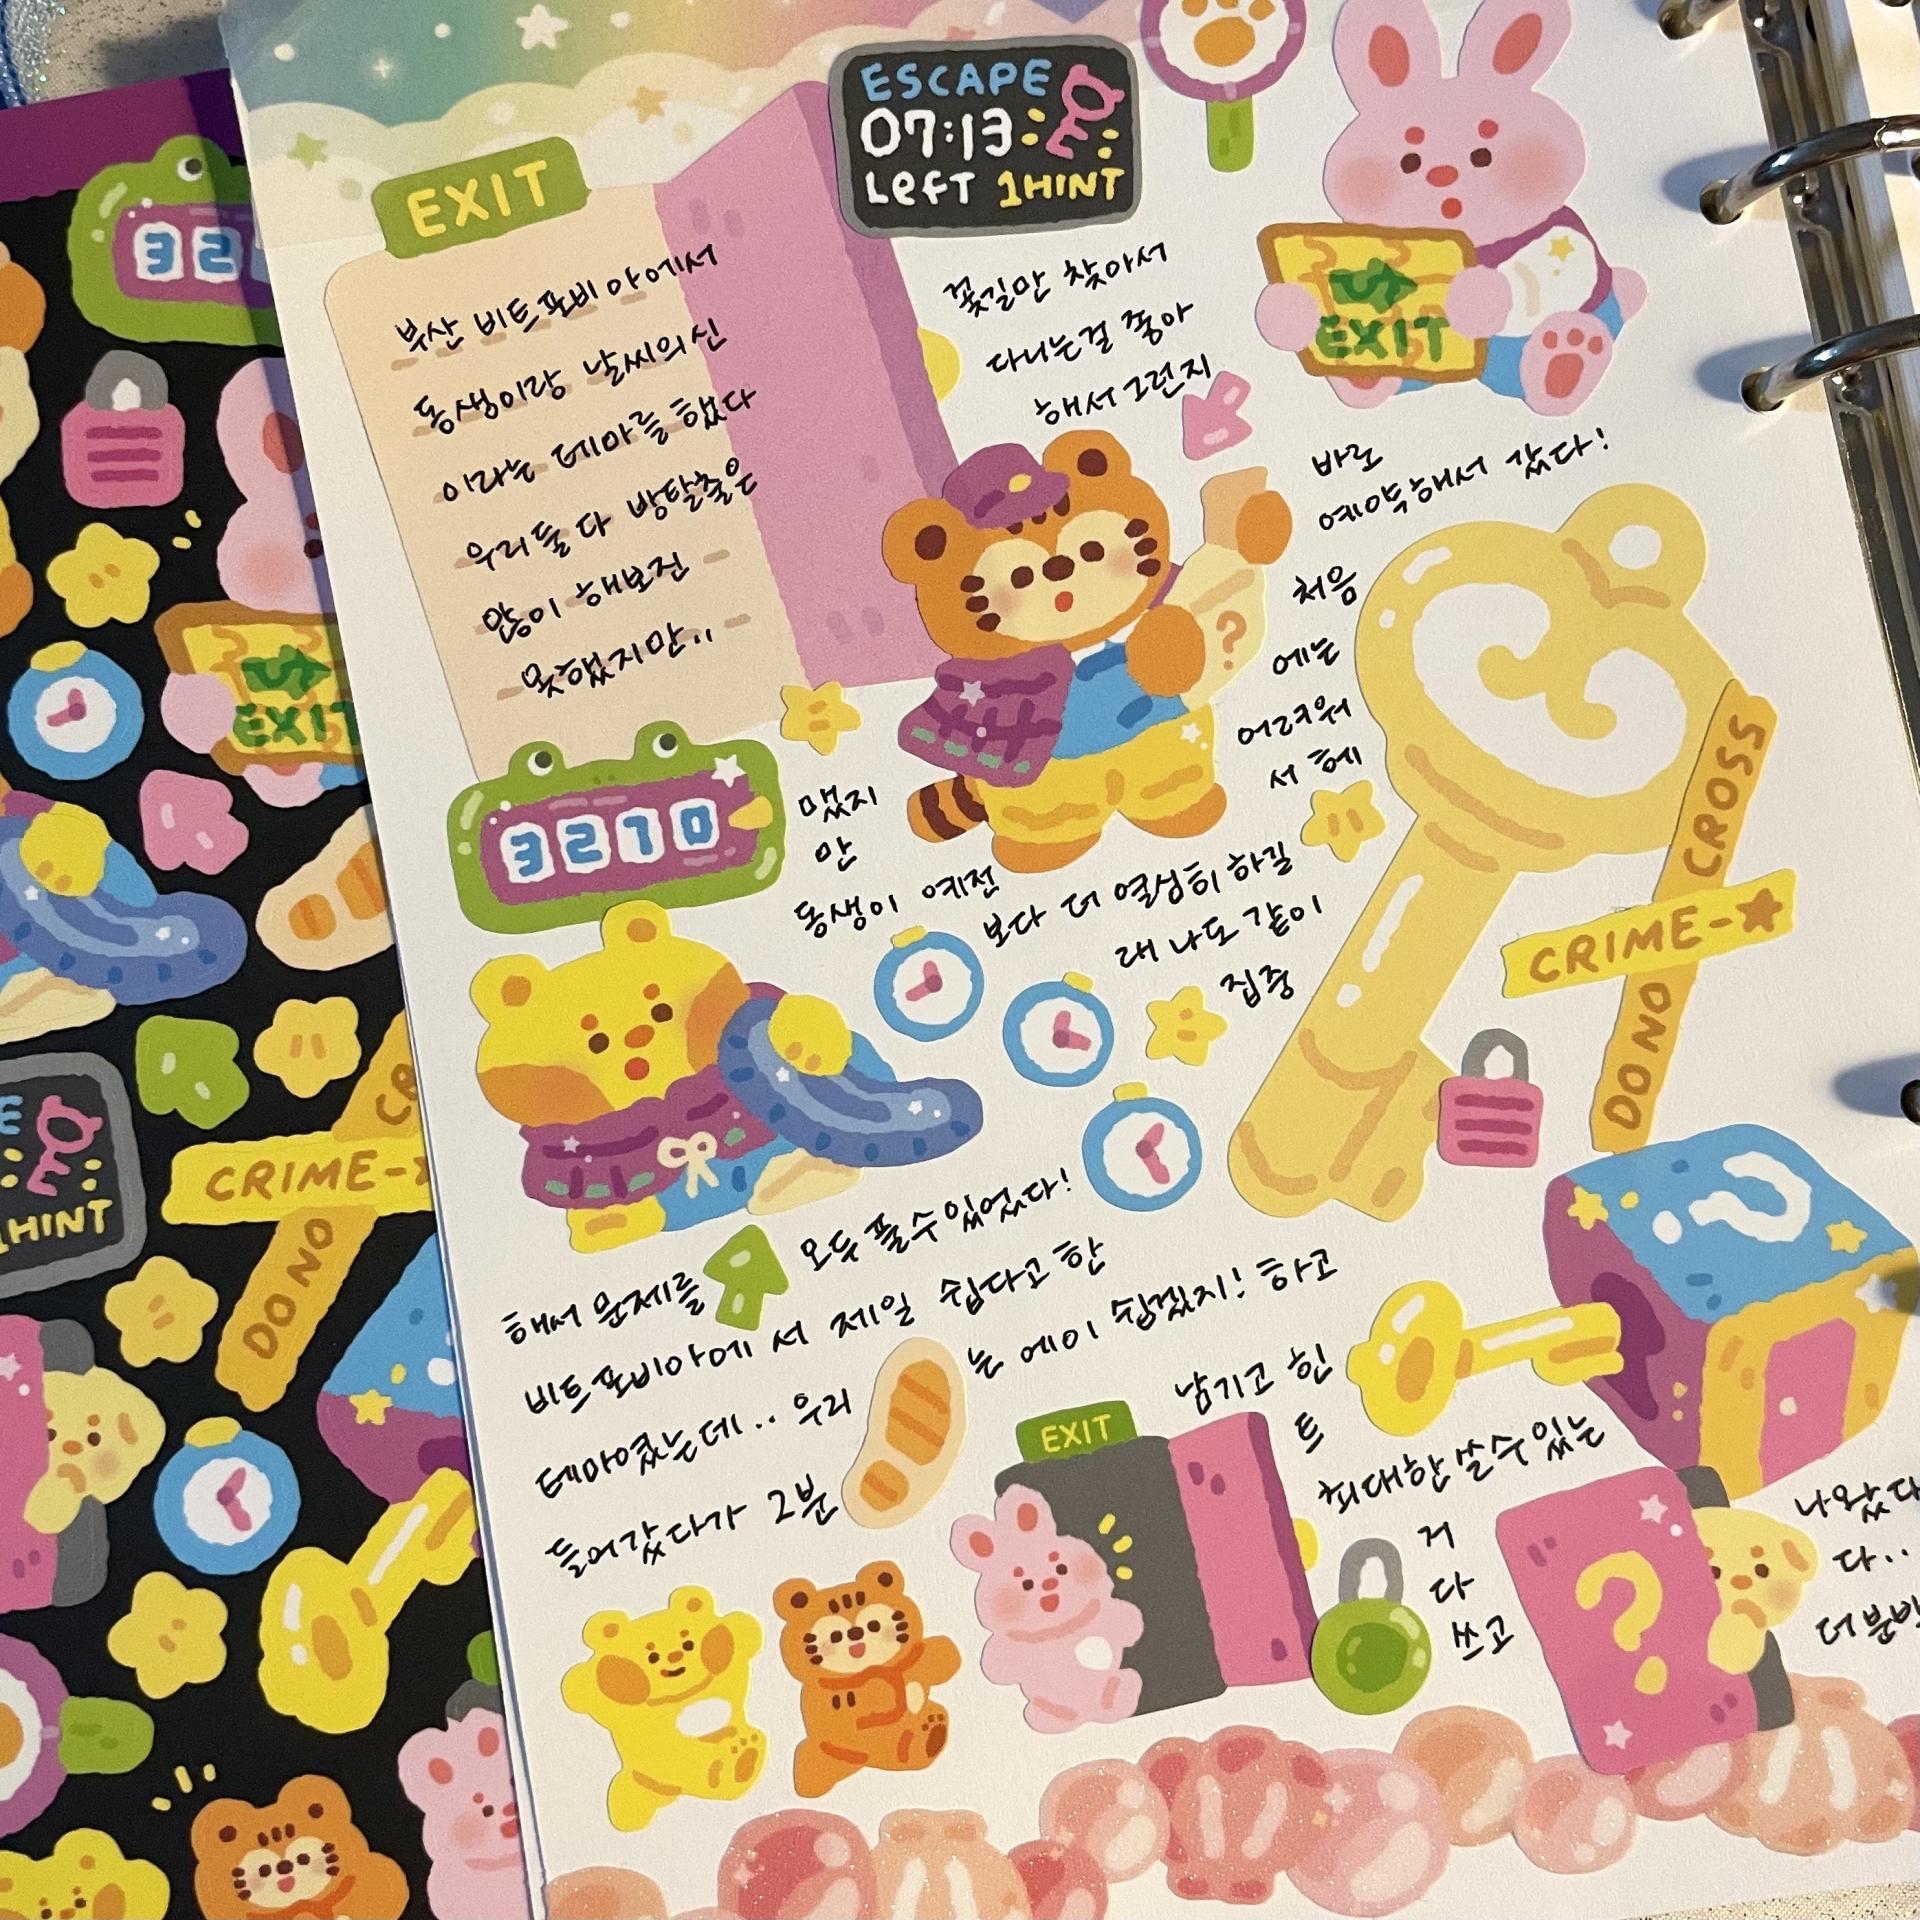 ESCAPE
07:13
Left 1HINT
EXIT
부산 비트포비아에서
동생이랑 날씨의신
이라는 테마를 했다
우리둘 다 방탈출은
많이 해보진
못했지만..
꽃길만 찾아서
다니는걸 좋아
해서 그런지
EXIT
바로
예약해서 갔다!
처음
에는
어려워
서 헤
맸지
만
동생이 예전
보다 더 열심히 하길
래 나도 같이
집중
3270
CRIME-
DO NO CROSS
해서 문제를
모두 풀수있었다!
비트포비아에서 제일 쉽다고 한
테마였는데.. 우리
는 에이 쉽겠지! 하고
들어갔다가 2분
남기고 힌
트
최대한 쓸수있는
거
다
쓰고
나왔다
다..
EXIT
?
?
?
32
EXIT
1HINT
CRIME-
DO NO